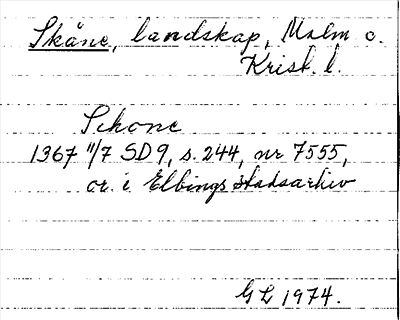 Skåne, landskap, Malm o.
Krist. l.
Schone
1367 11/7 SD9, s. 244, nr 7555,
or. i Elbings stadsarkiv
GL 1974.